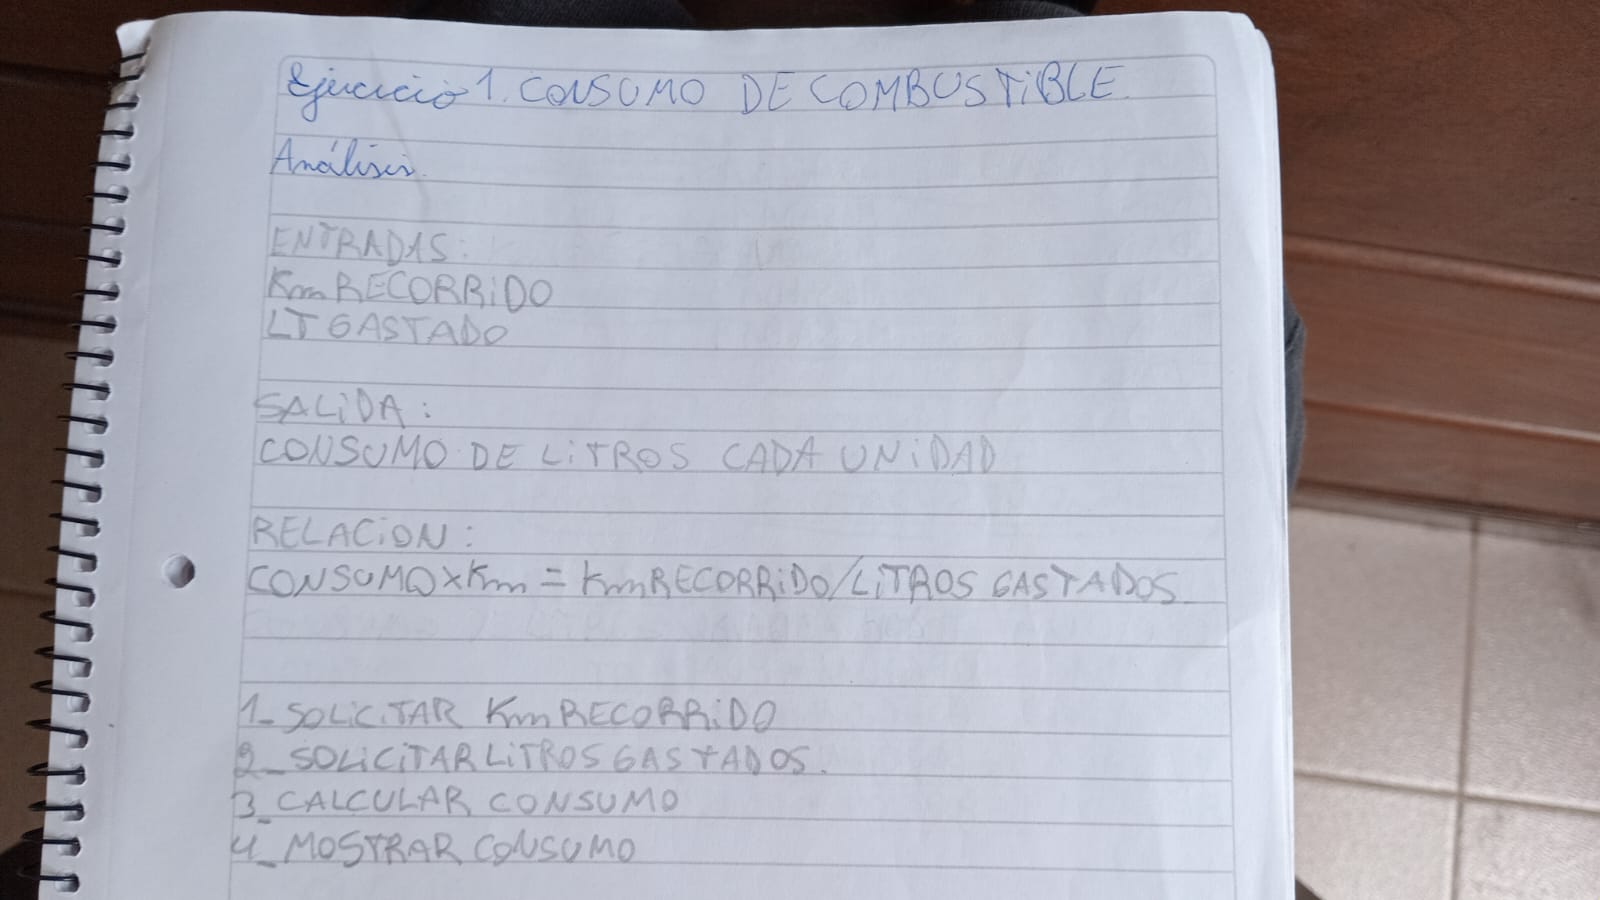 Ejercicio 1. CONSUMO DE COMBUSTIBLE.
Análisis.
ENTRADAS:
Km RECORRIDO
LT GASTADO
SALIDA:
CONSUMO DE LITROS CADA UNIDAD
RELACION:
CONSUMOxKm = KmRECORRIDO/LITROS GASTADOS
1_SOLICITAR Km RECORRIDO
2_SOLICITAR LITROS GASTADOS.
3_CALCULAR CONSUMO
4_MOSTRAR CONSUMO